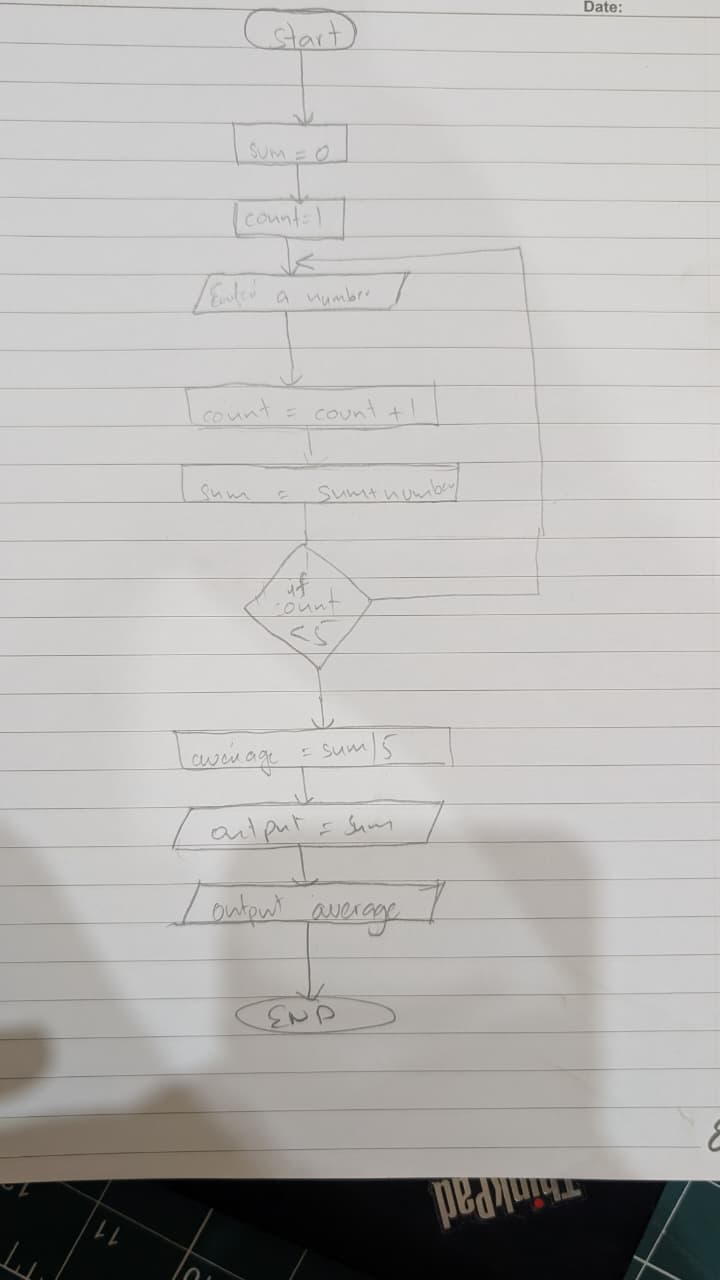 Date:
Start
sum = 0
count=1
a number
count = count + 1
sum = sum+number
if
count
<5
average = sum/5
output = sum
output average
END
ThinkPad
11